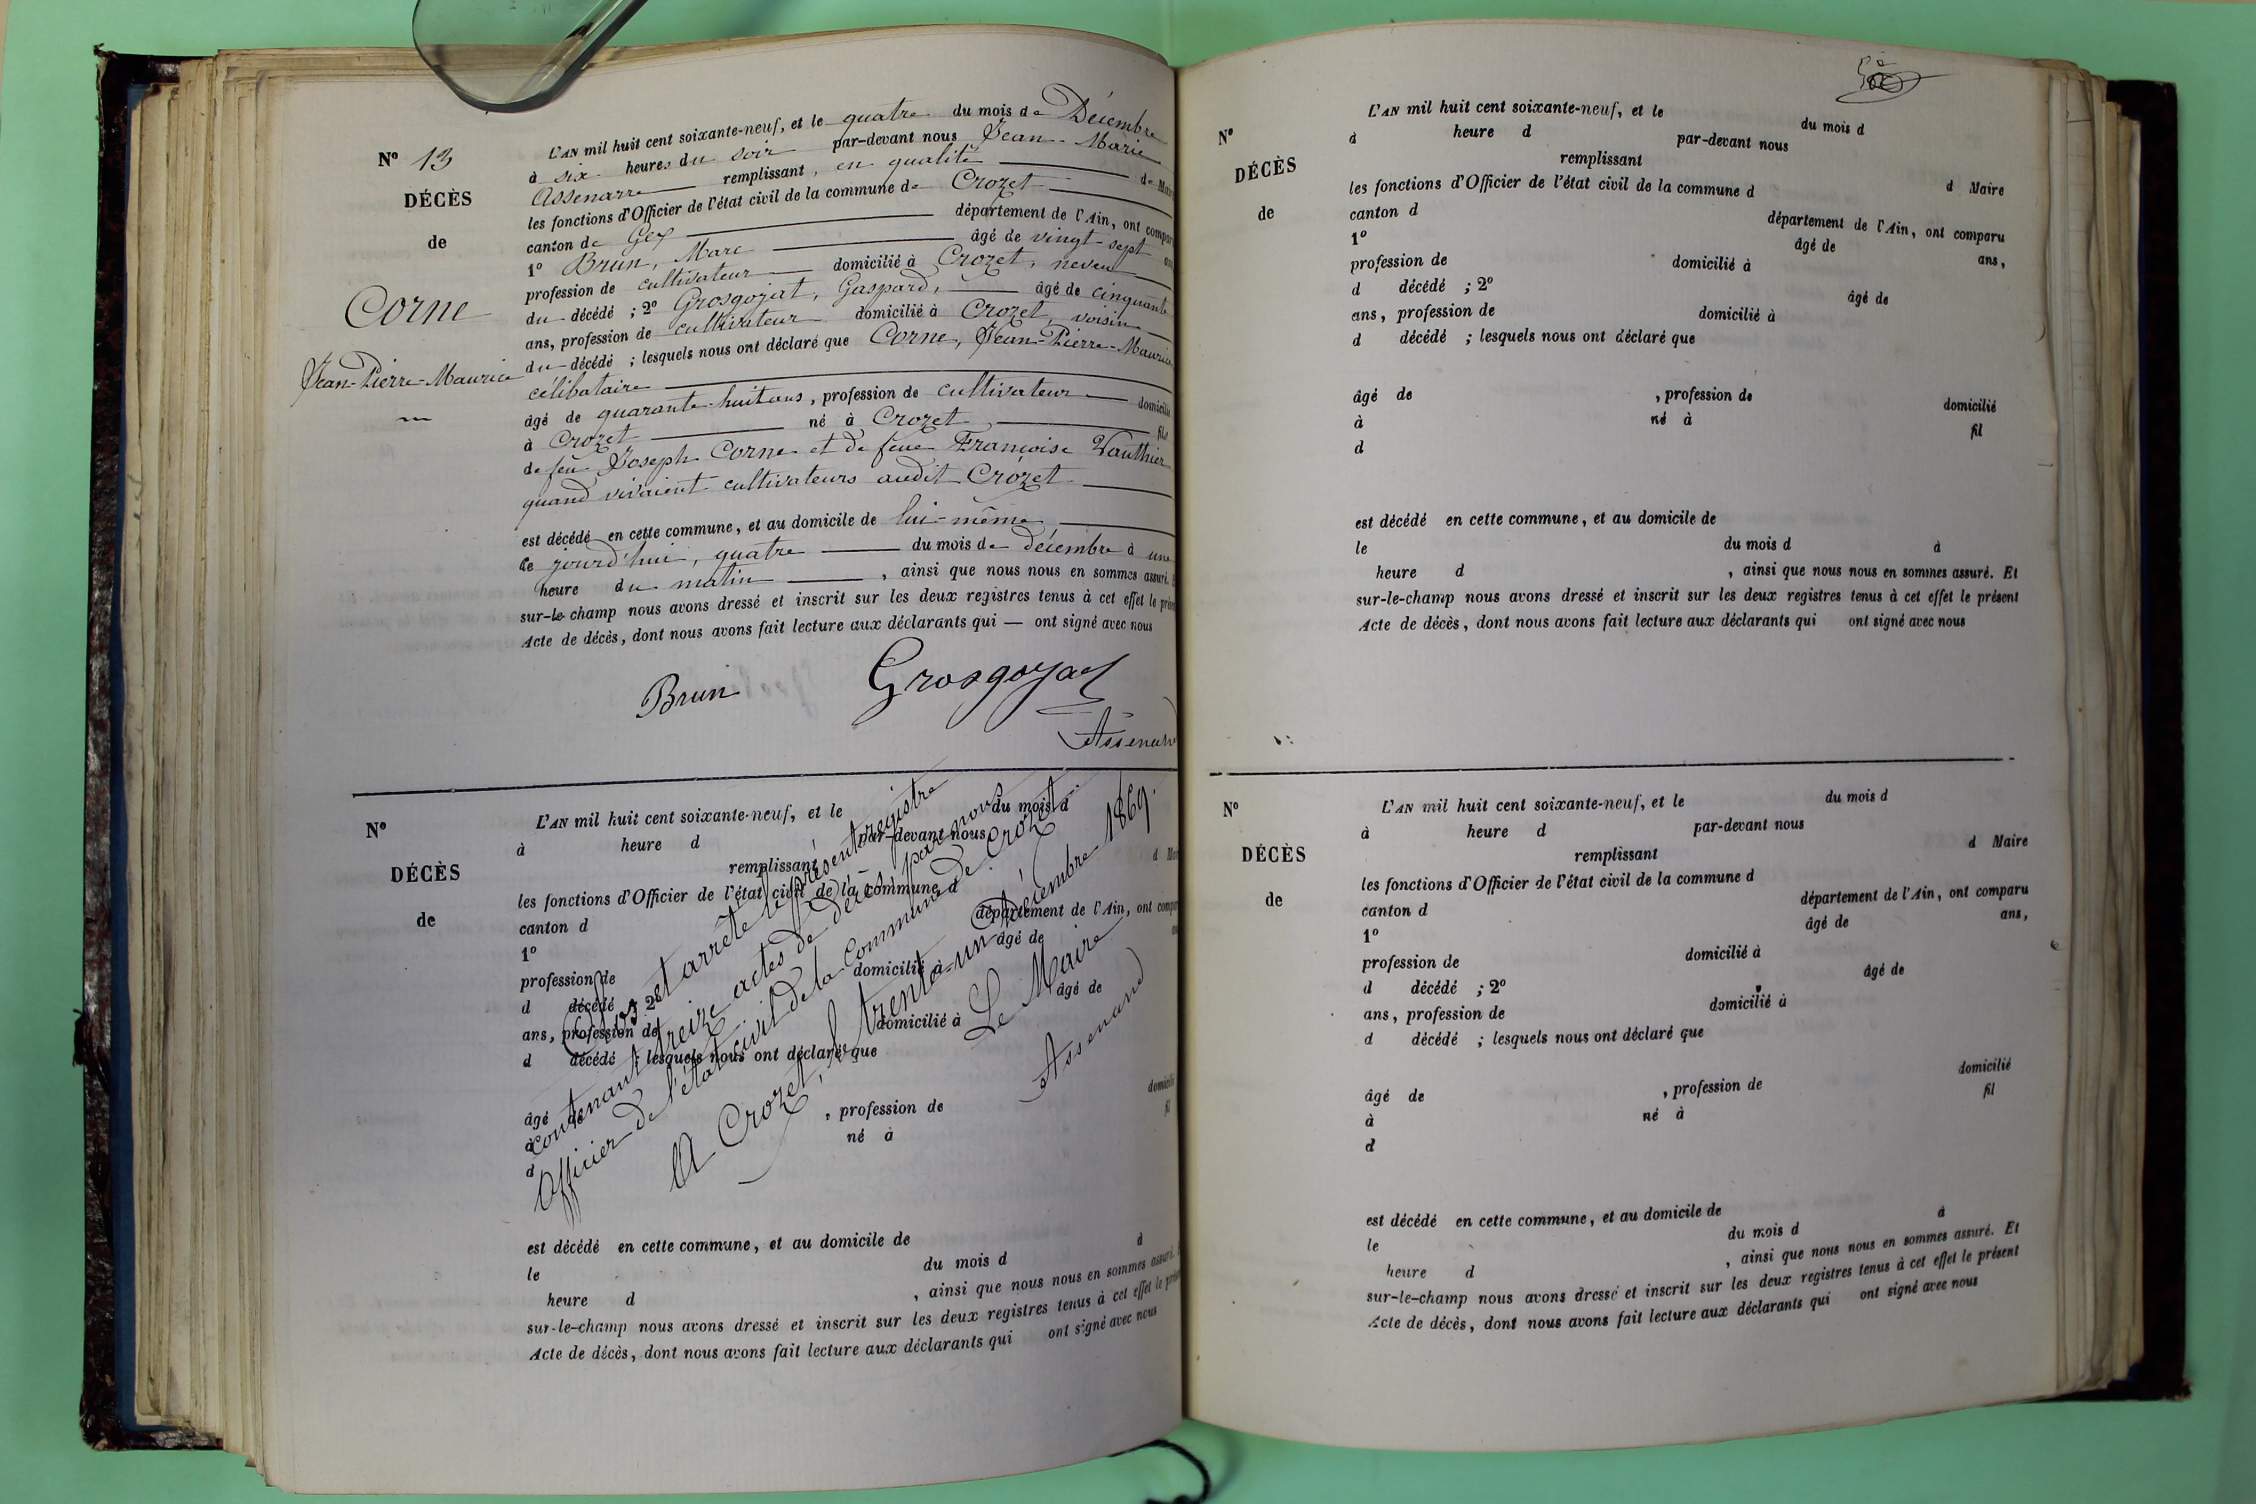 N° 13
DÉCÈS
de
Corne
Jean-Pierre-Maurice
L'AN mil huit cent soixante-neuf, et le quatre du mois de Décembre
à six heures du soir par-devant nous Jean-Marie
Assenare remplissant, en qualité de Maire
les fonctions d'Officier de l'état civil de la commune de Crozet
canton de Gex département de l'Ain, ont comparu
1° Brun, Marc âgé de vingt-sept ans
profession de cultivateur domicilié à Crozet, neveu
du décédé ; 2° Grosgojat, Gaspard, âgé de cinquante
ans, profession de cultivateur domicilié à Crozet, voisin
du décédé ; lesquels nous ont déclaré que Corne, Jean-Pierre-Maurice
célibataire
âgé de quarante-huit ans, profession de cultivateur domicilié
à Crozet né à Crozet fils
de feu Joseph Corne et de feue Françoise Vauthier
quand vivaient cultivateurs audit Crozet
est décédé en cette commune, et au domicile de lui-même
ce jourd'hui, quatre du mois de décembre à une
heure du matin , ainsi que nous nous en sommes assuré. Et
sur-le-champ nous avons dressé et inscrit sur les deux registres tenus à cet effet le présent
Acte de décès, dont nous avons fait lecture aux déclarants qui — ont signé avec nous
Brun Grosgojat
Assenard
N°
DÉCÈS
de
L'AN mil huit cent soixante-neuf, et le du mois d
à heure d par-devant nous
remplissant d Maire
les fonctions d'Officier de l'état civil de la commune d
canton d département de l'Ain, ont comparu
1° âgé de ans
profession de domicilié à
d décédé ; 2° âgé de
ans, profession de domicilié à
d décédé ; lesquels nous ont déclaré que
âgé de , profession de domicilié
à né à fil
d
est décédé en cette commune, et au domicile de
le du mois d à
heure d , ainsi que nous nous en sommes assuré. Et
sur-le-champ nous avons dressé et inscrit sur les deux registres tenus à cet effet le présent
Acte de décès, dont nous avons fait lecture aux déclarants qui ont signé avec nous
Clos et arrêté le présent registre
contenant treize actes de décès, par nous
Officier de l'état civil de la Commune de Crozet
A Crozet, le trente-un Décembre 1869.
Le Maire
Assenard
N°
DÉCÈS
de
L'AN mil huit cent soixante-neuf, et le du mois d
à heure d par-devant nous
remplissant d Maire
les fonctions d'Officier de l'état civil de la commune d
canton d département de l'Ain, ont comparu
1° âgé de ans,
profession de domicilié à
d décédé ; 2° âgé de
ans, profession de domicilié à
d décédé ; lesquels nous ont déclaré que
âgé de , profession de domicilié
à né à fil
d
est décédé en cette commune, et au domicile de
le du mois d à
heure d , ainsi que nous nous en sommes assuré. Et
sur-le-champ nous avons dressé et inscrit sur les deux registres tenus à cet effet le présent
Acte de décès, dont nous avons fait lecture aux déclarants qui ont signé avec nous
N°
DÉCÈS
de
L'AN mil huit cent soixante-neuf, et le du mois d
à heure d par-devant nous
remplissant d Maire
les fonctions d'Officier de l'état civil de la commune d
canton d département de l'Ain, ont comparu
1° âgé de ans,
profession de domicilié à
d décédé ; 2° âgé de
ans, profession de domicilié à
d décédé ; lesquels nous ont déclaré que
âgé de , profession de domicilié
à né à fil
d
est décédé en cette commune, et au domicile de
le du mois d à
heure d , ainsi que nous nous en sommes assuré. Et
sur-le-champ nous avons dressé et inscrit sur les deux registres tenus à cet effet le présent
Acte de décès, dont nous avons fait lecture aux déclarants qui ont signé avec nous